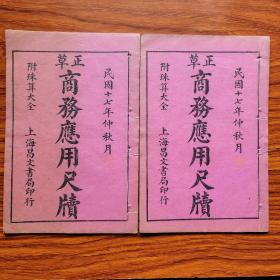 民國十七年仲秋月
正草
商務應用尺牘
附珠算大全
上海昌文書局印行
民國十七年仲秋月
正草
商務應用尺牘
附珠算大全
上海昌文書局印行